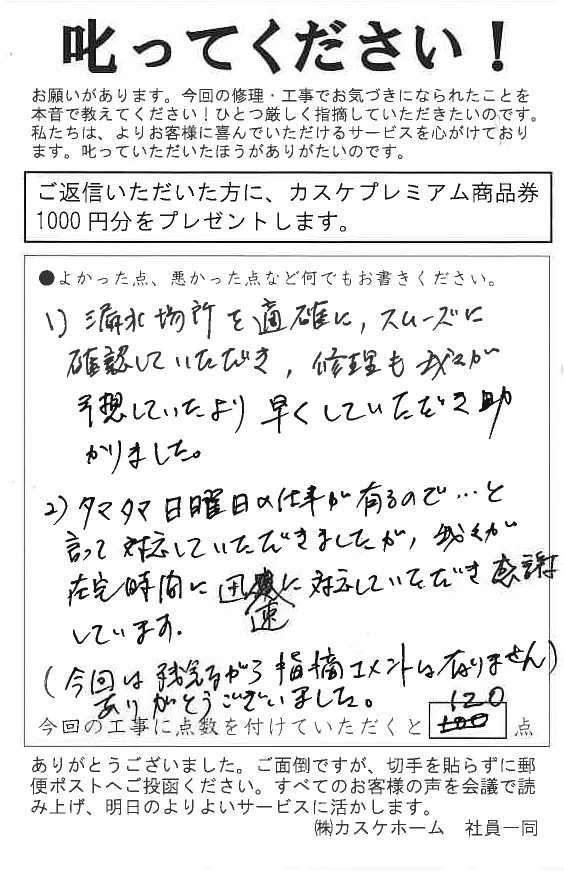 叱ってください！
お願いがあります。今回の修理・工事でお気づきになられたことを
本音で教えてください！ひとつ厳しく指摘していただきたいのです。
私たちは、よりお客様に喜んでいただけるサービスを心がけており
ます。叱っていただいたほうがありがたいのです。
ご返信いただいた方に、カスケプレミアム商品券
1000円分をプレゼントします。
●よかった点、悪かった点など何でもお書きください。
1) 漏水場所を適確に, スムーズに
確認していただき, 修理も我々が
予想していたより早くしていただき助
かりました。
2) タマタマ日曜日の仕事が有るので…と
言って対応していただきましたが, 我々が
在宅時間に迅速に対応していただき感謝
しています.
(今回は残念ながら指摘コメントは有りません)
ありがとうございました。
120
今回の工事に点数を付けていただくと 100 点
ありがとうございました。ご面倒ですが、切手を貼らずに郵
便ポストへご投函ください。すべてのお客様の声を会議で読
み上げ、明日のよりよいサービスに活かします。
㈱カスケホーム 社員一同